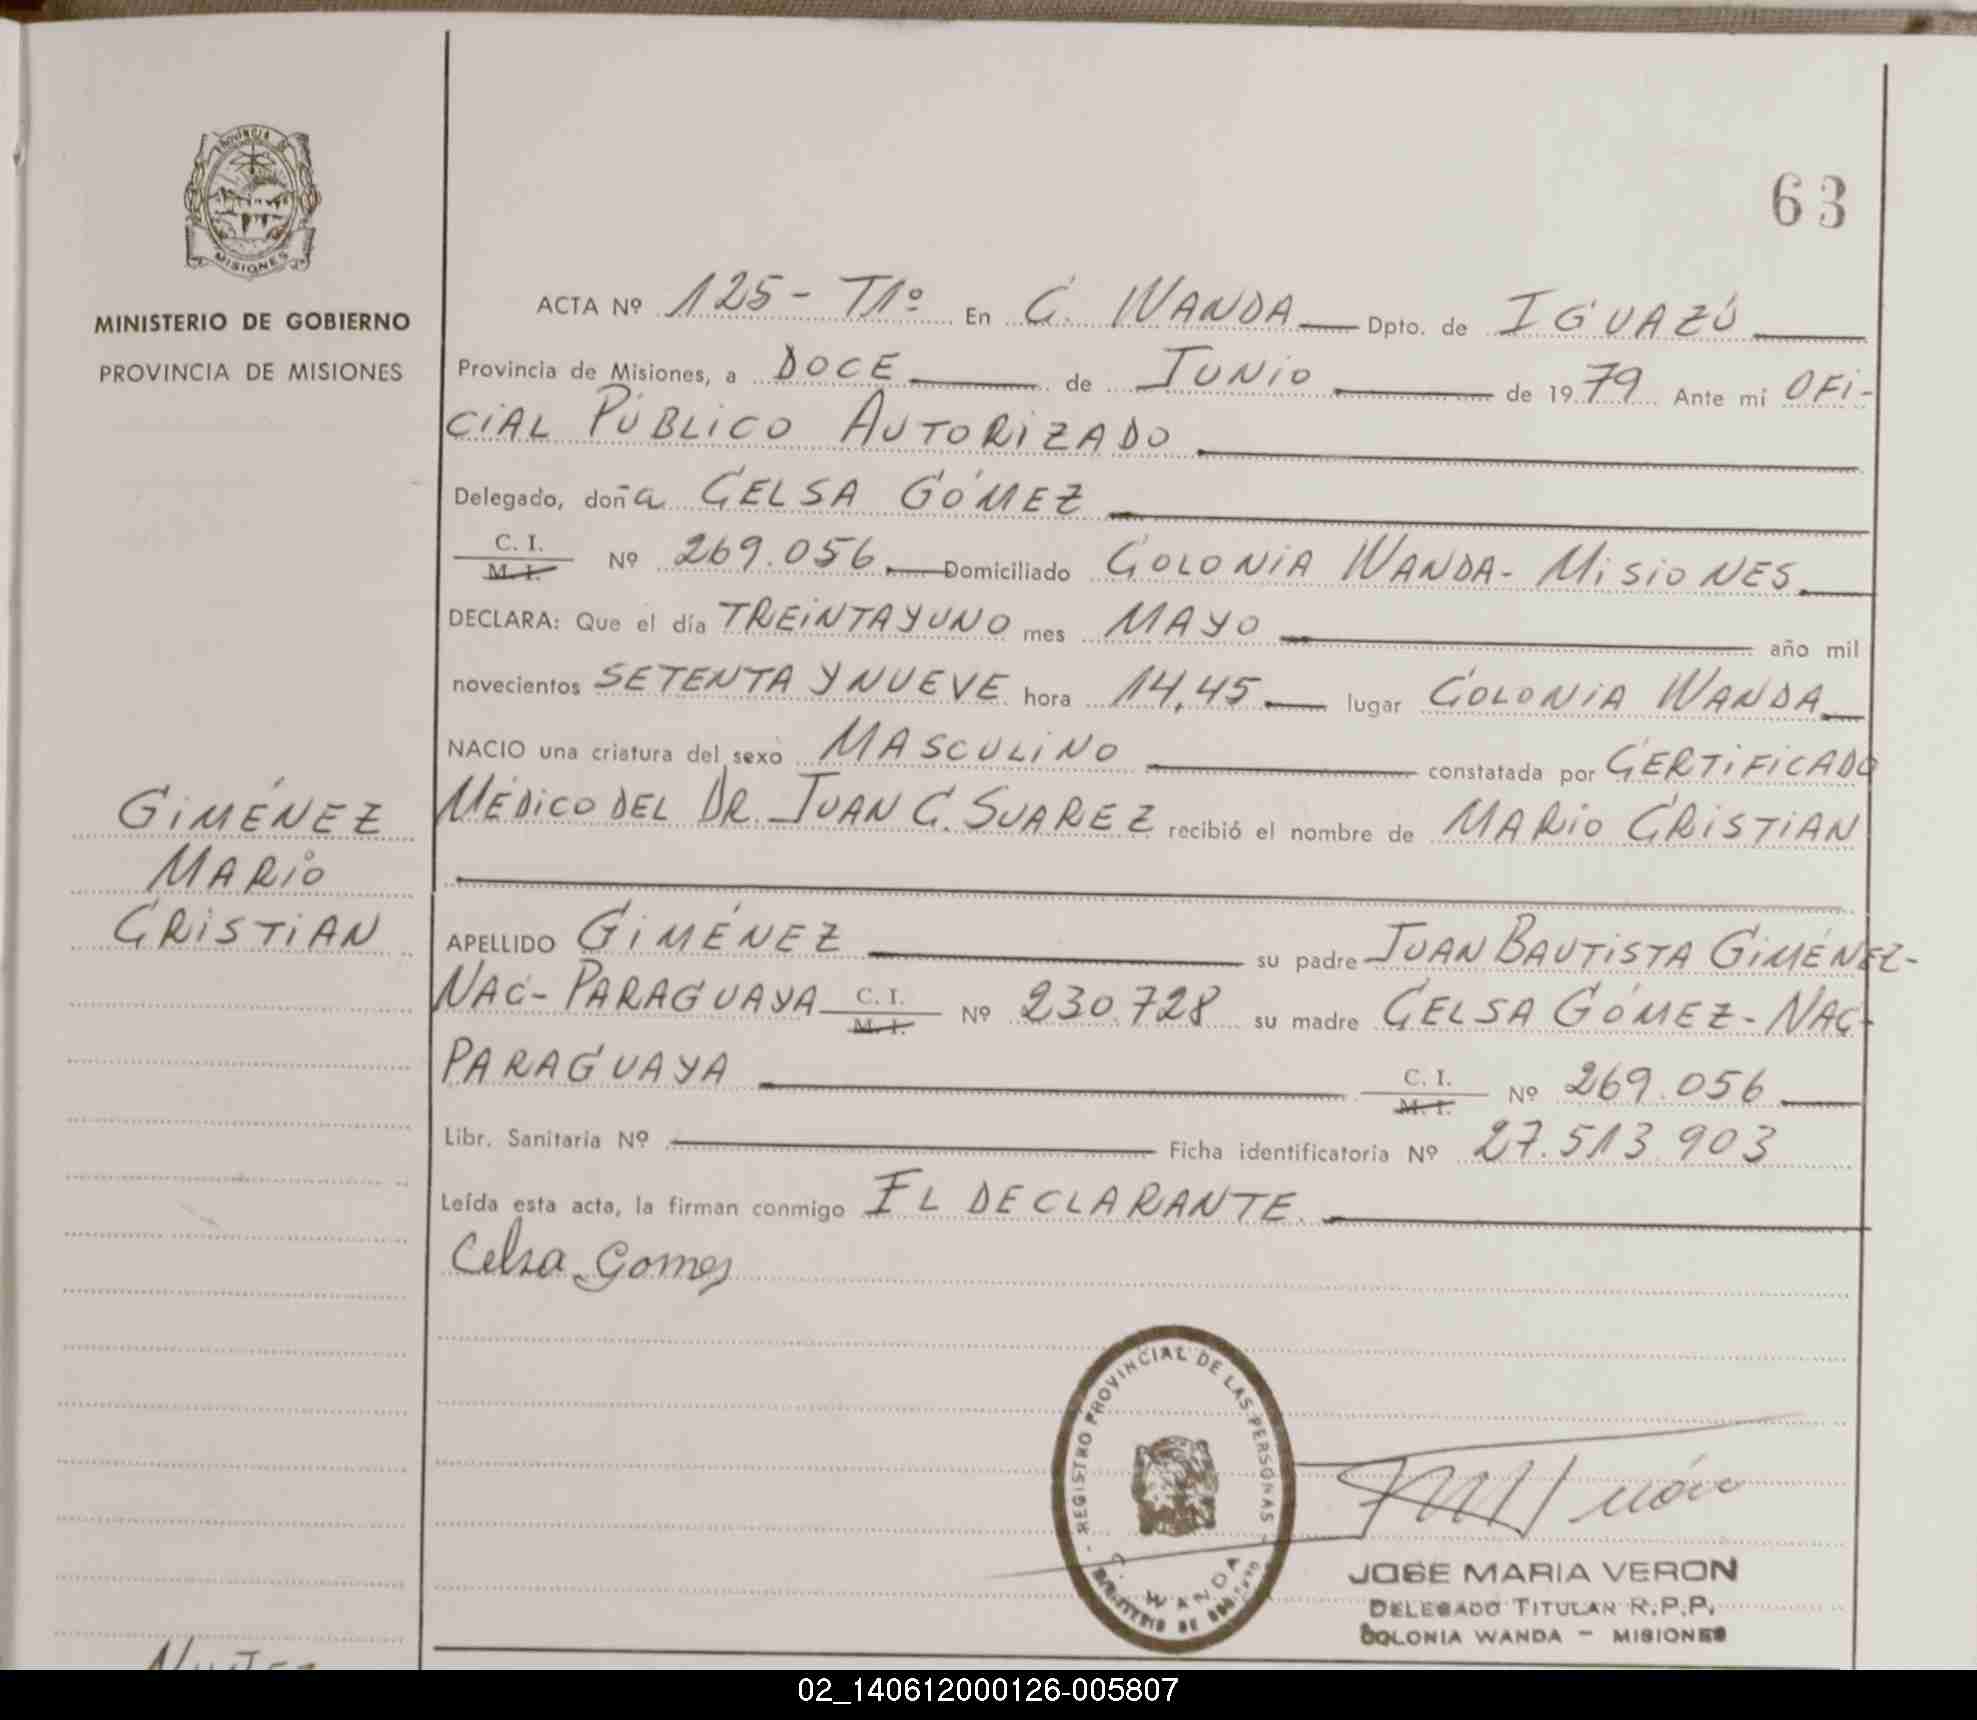 PROVINCIA DE
MISIONES
MINISTERIO DE GOBIERNO
PROVINCIA DE MISIONES
63
ACTA Nº 125 - T1º En C. WANDA Dpto. de IGUAZÚ
Provincia de Misiones, a DOCE de JUNIO de 1979 Ante mi OFI-
CIAL PÚBLICO AUTORIZADO
Delegado, doña CELSA GÓMEZ
C. I.
M. I. Nº 269.056 Domiciliado COLONIA WANDA - MISIONES
DECLARA: Que el día TREINTA Y UNO mes MAYO año mil
novecientos SETENTA Y NUEVE hora 14,45 lugar COLONIA WANDA
NACIO una criatura del sexo MASCULINO constatada por CERTIFICADO
MÉDICO DEL DR. JUAN C. SUAREZ recibió el nombre de MARIO CRISTIAN
GIMÉNEZ
MARIO
CRISTIAN
APELLIDO GIMÉNEZ su padre JUAN BAUTISTA GIMÉNEZ-
NAC- PARAGUAYA C. I. M. I. Nº 230.728 su madre CELSA GÓMEZ - NAC-
PARAGUAYA C. I. M. I. Nº 269.056
Libr. Sanitaria Nº Ficha identificatoria Nº 27.513.903
Leída esta acta, la firman conmigo EL DECLARANTE
Celsa Gomes
- REGISTRO PROVINCIAL DE LAS PERSONAS -
WANDA
JOSE MARIA VERON
DELEGADO TITULAR R.P.P.
COLONIA WANDA - MISIONES
02_140612000126-005807